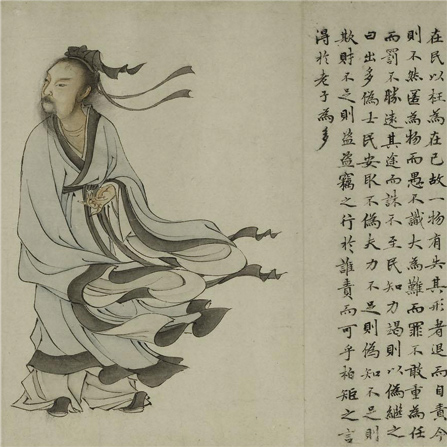 在民以枉為在己故一物有失其形者退而自責今
則不然匿為物而愚不識大為難而罪不敢重為任
而罰不勝遠其途而誅不至民知力竭則以偽繼之
日出多偽士民安取不偽夫力不足則偽知不足則
欺財不足則盜盜竊之行於誰責而可乎柏矩之言
得於老子為多